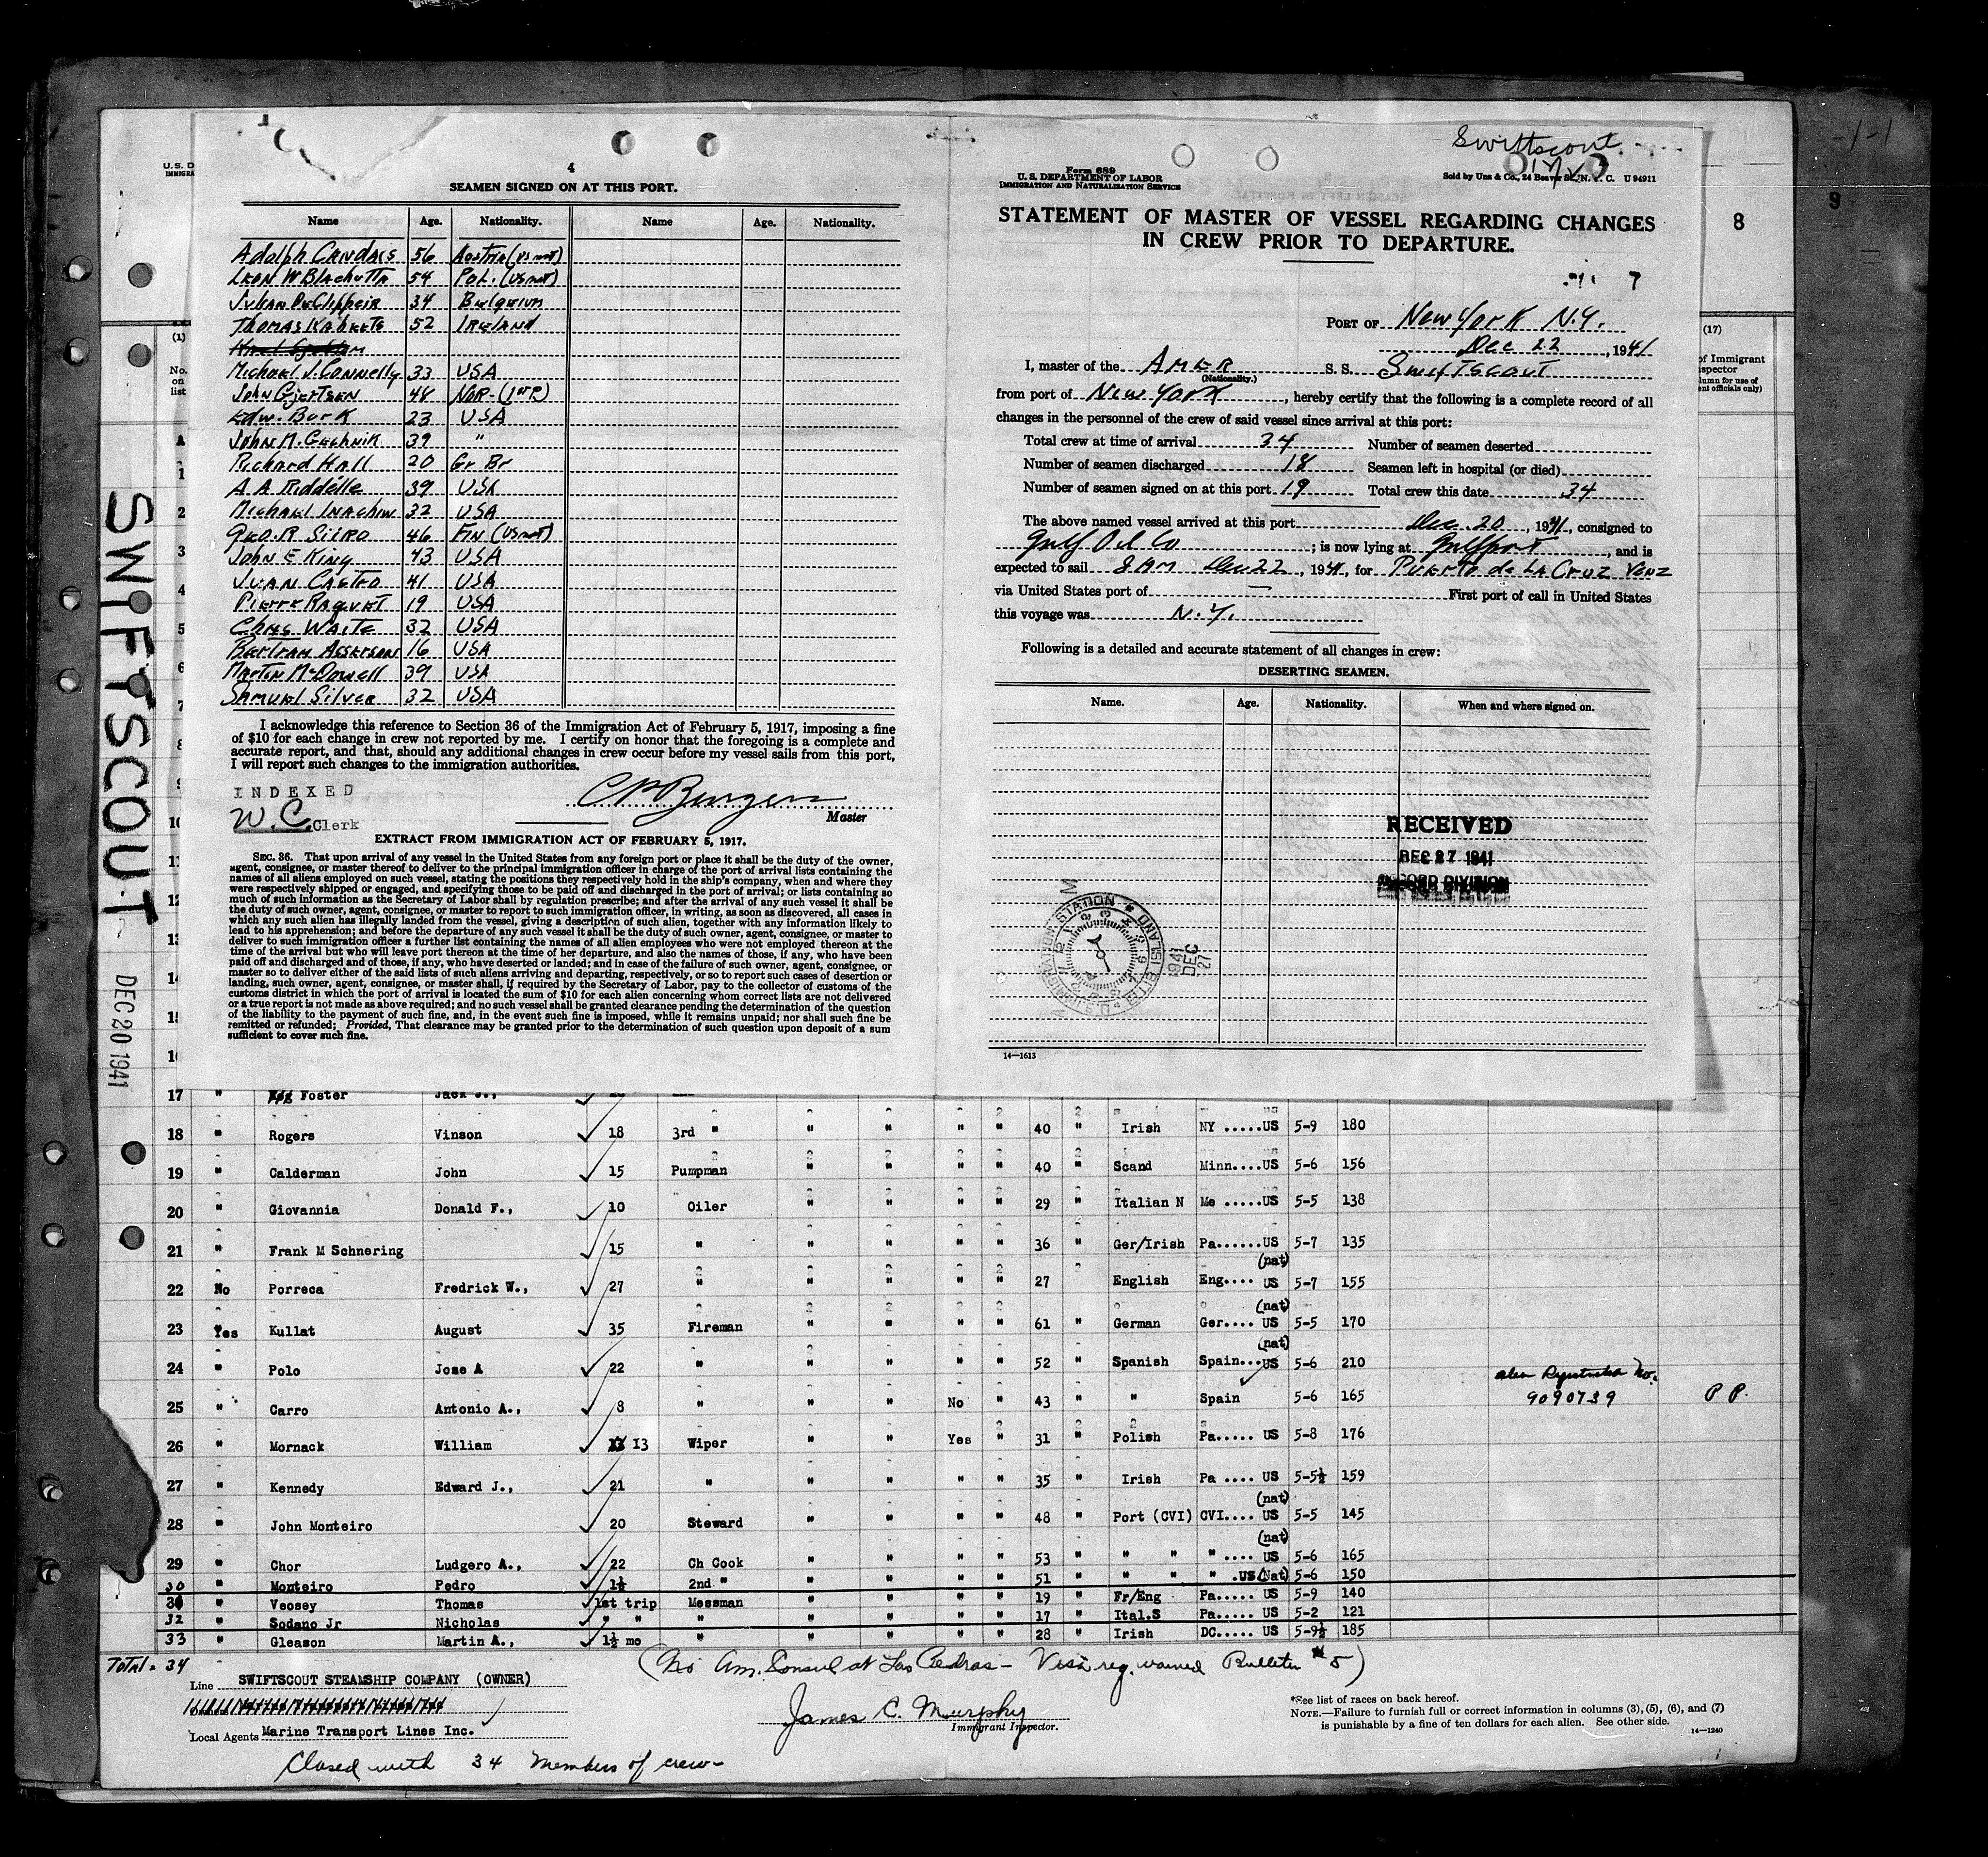 SWIFTSCOUT
DEC 20 1941
U. S. D
IMMIGRA
(1)
No.
on
list
4
SEAMEN SIGNED ON AT THIS PORT.
Name Age. Nationality. Name Age. Nationality.
Adolph Candais 56 Austria (US nat)
Leon W Blachutta 54 Pol. (US nat)
Julian DeClippeir 34 Belgeium
Thomas 52 Ireland
Michael J. Connelly 33 USA
John Gjertsen 48 Nor - (1st P.)
Edw. Bork 23 USA
John M. Cechnik 39 "
Richard Hall 20 Gr Br
A A Riddelle 39 USA
Michael Inachin 32 USA
Geo. R Siiro 46 Fin (US nat)
John E King 43 USA
Juan Castro 41 USA
Pierre Raquet 19 USA
Chas Waite 32 USA
Bertram Asserson 16 USA
Martin McDowell 39 USA
Samuel Silver 32 USA
I acknowledge this reference to Section 36 of the Immigration Act of February 5, 1917, imposing a fine
of $10 for each change in crew not reported by me. I certify on honor that the foregoing is a complete and
accurate report, and that, should any additional changes in crew occur before my vessel sails from this port,
I will report such changes to the immigration authorities.
INDEXED
W. C. Clerk
Master
EXTRACT FROM IMMIGRATION ACT OF FEBRUARY 5, 1917.
SEC. 36. That upon arrival of any vessel in the United States from any foreign port or place it shall be the duty of the owner,
agent, consignee, or master thereof to deliver to the principal immigration officer in charge of the port of arrival lists containing the
names of all aliens employed on such vessel, stating the positions they respectively hold in the ship's company, when and where they
were respectively shipped or engaged, and specifying those to be paid off and discharged in the port of arrival; or lists containing so
much of such information as the Secretary of Labor shall by regulation prescribe; and after the arrival of any such vessel it shall be
the duty of such owner, agent, consignee, or master to report to such immigration officer, in writing, as soon as discovered, all cases in
which any such alien has illegally landed from the vessel, giving a description of such alien, together with any information likely to
lead to his apprehension; and before the departure of any such vessel it shall be the duty of such owner, agent, consignee, or master to
deliver to such immigration officer a further list containing the names of all alien employees who were not employed thereon at the
time of the arrival but who will leave port thereon at the time of her departure, and also the names of those, if any, who have been
paid off and discharged and of those, if any, who have deserted or landed; and in case of the failure of such owner, agent, consignee, or
master so to deliver either of the said lists of such aliens arriving and departing, respectively, or so to report such cases of desertion or
landing, such owner, agent, consignee, or master shall, if required by the Secretary of Labor, pay to the collector of customs of the
customs district in which the port of arrival is located the sum of $10 for each alien concerning whom correct lists are not delivered
or a true report is not made as above required; and no such vessel shall be granted clearance pending the determination of the question
of the liability to the payment of such fine, and, in the event such fine is imposed, while it remains unpaid; nor shall such fine be
remitted or refunded; Provided, That clearance may be granted prior to the determination of such question upon deposit of a sum
sufficient to cover such fine.
Swiftscout
Form 689
U. S. DEPARTMENT OF LABOR
IMMIGRATION AND NATURALIZATION SERVICE
Sold by Unz & Co., 24 Beaver St., N. Y. C. U 94911
STATEMENT OF MASTER OF VESSEL REGARDING CHANGES
IN CREW PRIOR TO DEPARTURE.
7
PORT OF New York N.Y.
Dec 22, 1941
I, master of the Amer S. S. Swiftscout
(Nationality.)
from port of New York, hereby certify that the following is a complete record of all
changes in the personnel of the crew of said vessel since arrival at this port:
Total crew at time of arrival 34 Number of seamen deserted
Number of seamen discharged 18 Seamen left in hospital (or died)
Number of seamen signed on at this port 19 Total crew this date 34
The above named vessel arrived at this port Dec. 20, 1941, consigned to
Gulf Oil Co; is now lying at Gulfport, and is
expected to sail 8 AM Dec 22, 1941, for Puerto de La Cruz Venz
via United States port of — First port of call in United States
this voyage was N.Y.
Following is a detailed and accurate statement of all changes in crew:
DESERTING SEAMEN.
Name. Age. Nationality. When and where signed on.
RECEIVED
DEC 27 1941
RECORD DIVISION
IMMIGRATION STATION ★ ELLIS ISLAND
1941 DEC 27
14—1613
8
9
(17)
of Immigrant
spector
lumn for use of
ent officials only)
17 " Foster Jack J.,
18 " Rogers Vinson 18 3rd " " " " " 40 " Irish NY .....US 5-9 180
19 " Calderman John 15 Pumpman " " " " 40 " Scand Minn....US 5-6 156
20 " Giovannia Donald F., 10 Oiler " " " " 29 " Italian N Me .....US 5-5 138
21 " Frank M Schnering 15 " " " " " 36 " Ger/Irish Pa......US 5-7 135
22 No Porreca Fredrick W., 27 " " " " " 27 " English Eng.... US (nat) 5-7 155
23 Yes Kullat August 35 Fireman " " " " 61 " German Ger.... US (nat) 5-5 170
24 " Polo Jose A 22 " " " " " 52 " Spanish Spain...US (nat) 5-6 210
25 " Carro Antonio A., 8 " " " No " 43 " " Spain 5-6 165 9090739 P P.
26 " Mornack William 13 Wiper " " Yes " 31 " Polish Pa..... US 5-8 176
27 " Kennedy Edward J., 21 " " " " " 35 " Irish Pa .... US 5-5½ 159
28 " John Monteiro 20 Steward " " " " 48 " Port (CVI) CVI.... US (nat) 5-5 145
29 " Chor Ludgero A., 22 Ch Cook " " " " 53 " " " " .... US (nat) 5-6 165
30 " Monteiro Pedro 1½ 2nd " " " " " 51 " " " " .US(Nat) 5-6 150
31 " Veosey Thomas 1st trip Messman " " " " 19 " Fr/Eng Pa..... US 5-9 140
32 " Sodano Jr Nicholas " " " " " " " 17 " Ital.S Pa..... US 5-2 121
33 " Gleason Martin A., 1½ mo " " " " " 28 " Irish DC..... US 5-9½ 185
Total = 34
(No Am. Consul at Las Piedras - Visa reg. waived Bulletin #5)
Line SWIFTSCOUT STEAMSHIP COMPANY (OWNER)
Local Agents Marine Transport Lines Inc.
James C. Murphy
Immigrant Inspector.
*See list of races on back hereof.
NOTE.—Failure to furnish full or correct information in columns (3), (5), (6), and (7)
is punishable by a fine of ten dollars for each alien. See other side.
14—1240
Closed with 34 members of crew-